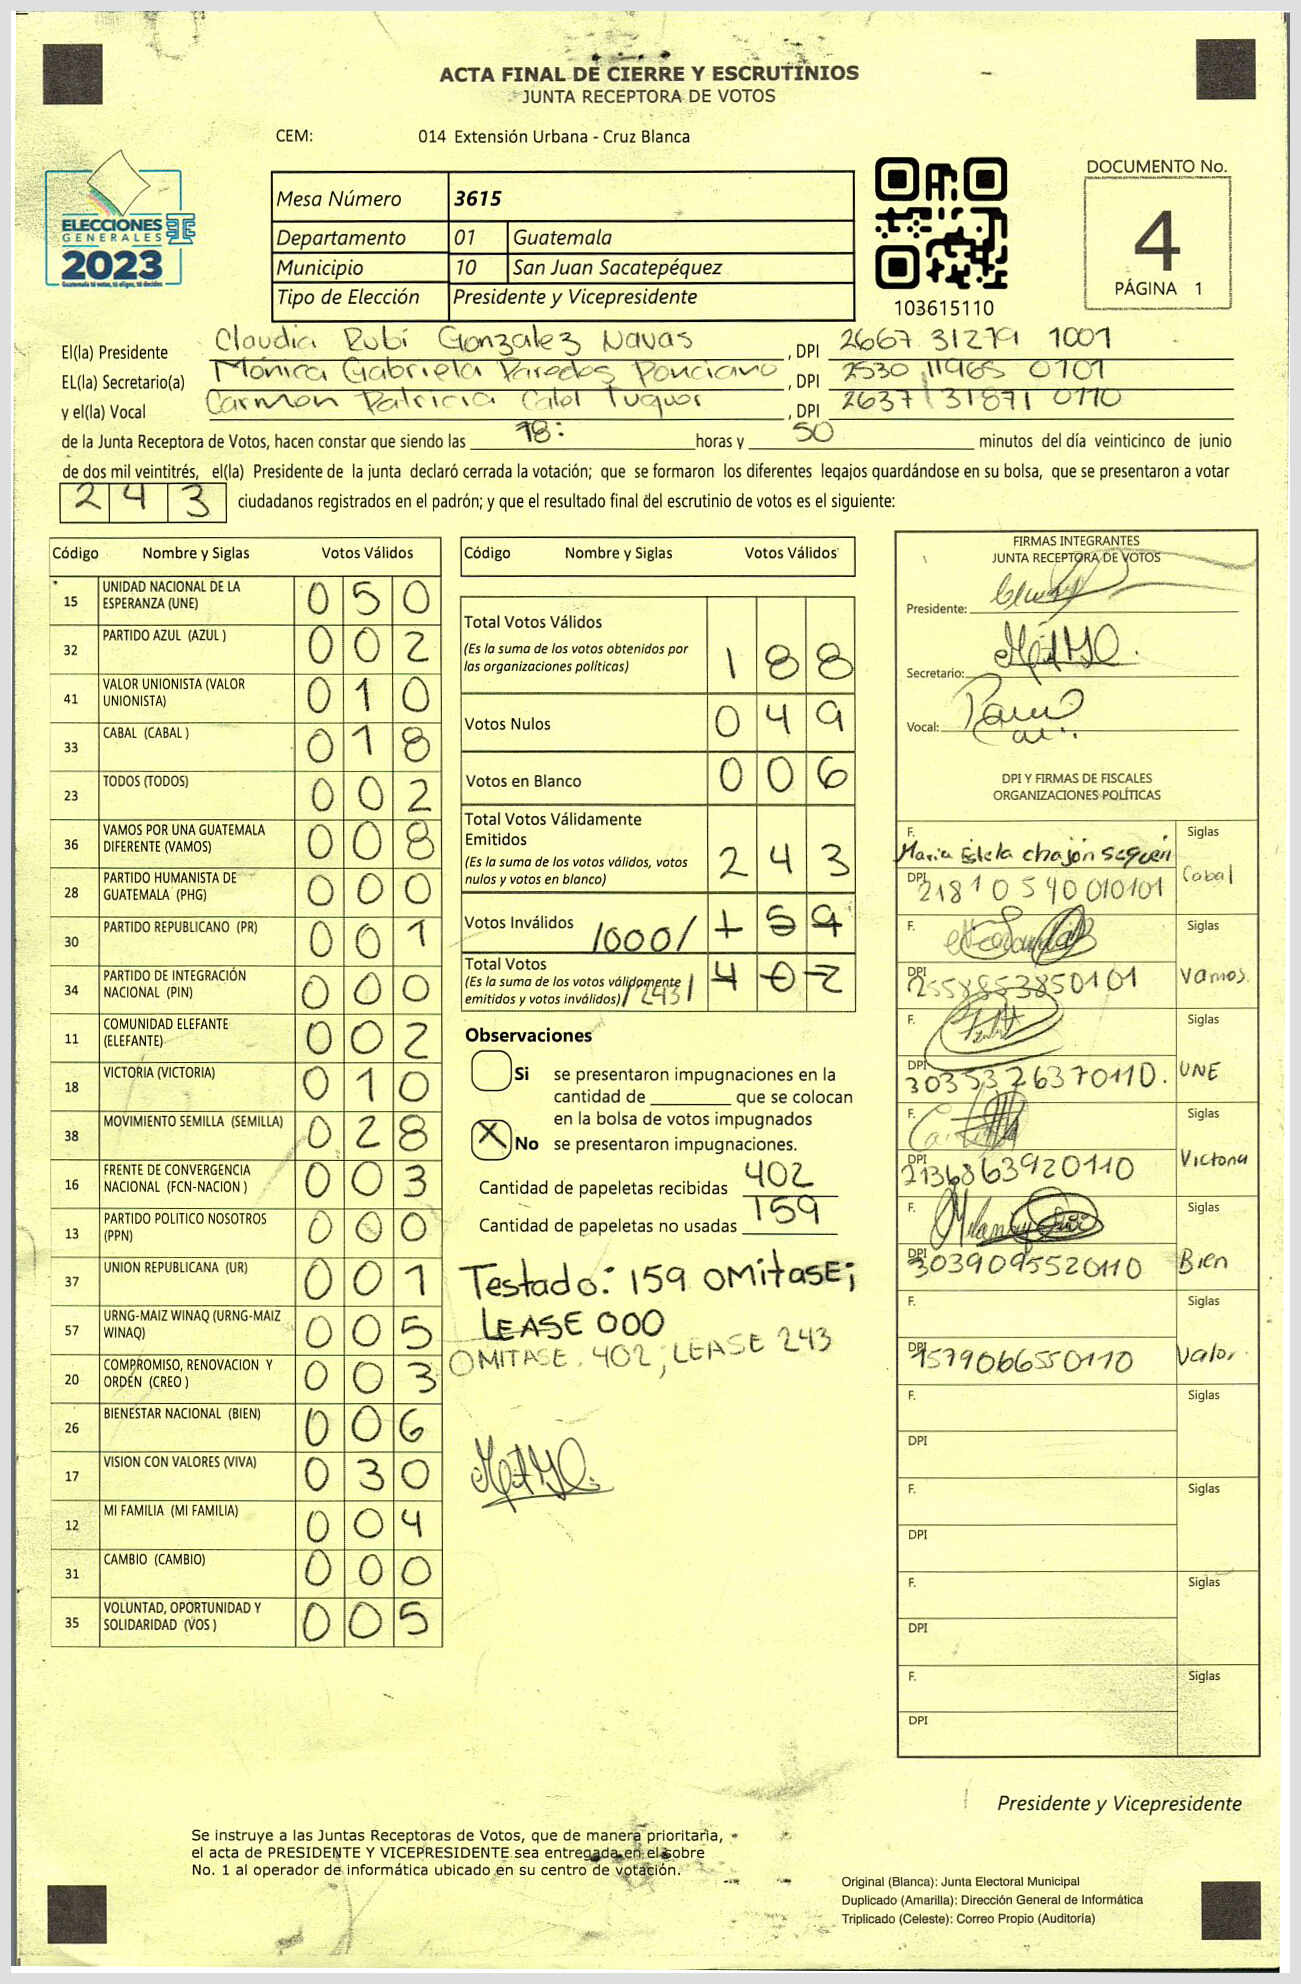 ACTA FINAL DE CIERRE Y ESCRUTINIOS
JUNTA RECEPTORA DE VOTOS
CEM: 014 Extensión Urbana - Cruz Blanca
ELECCIONES
GENERALES
2023
Guatemala tú votas, tú eliges, tú decides
Mesa Número 3615
Departamento 01 Guatemala
Municipio 10 San Juan Sacatepéquez
Tipo de Elección Presidente y Vicepresidente
103615110
DOCUMENTO No.
4
PÁGINA 1
El(la) Presidente Claudia Rubí Gonzalez Navas, DPI 2667 31279 1001
EL(la) Secretario(a) Mónica Gabriela Paredes Ponciano, DPI 2530 11965 0101
y el(la) Vocal Carmen Patricia Catol Tuquer, DPI 2637 31871 0110
de la Junta Receptora de Votos, hacen constar que siendo las 18: horas y 50 minutos del día veinticinco de junio
de dos mil veintitrés, el(la) Presidente de la junta declaró cerrada la votación; que se formaron los diferentes legajos guardándose en su bolsa, que se presentaron a votar
243 ciudadanos registrados en el padrón; y que el resultado final del escrutinio de votos es el siguiente:
Código Nombre y Siglas Votos Válidos
15 UNIDAD NACIONAL DE LA ESPERANZA (UNE) 050
32 PARTIDO AZUL (AZUL ) 002
41 VALOR UNIONISTA (VALOR UNIONISTA) 010
33 CABAL (CABAL ) 018
23 TODOS (TODOS) 002
36 VAMOS POR UNA GUATEMALA DIFERENTE (VAMOS) 008
28 PARTIDO HUMANISTA DE GUATEMALA (PHG) 000
30 PARTIDO REPUBLICANO (PR) 001
34 PARTIDO DE INTEGRACIÓN NACIONAL (PIN) 000
11 COMUNIDAD ELEFANTE (ELEFANTE) 002
18 VICTORIA (VICTORIA) 010
38 MOVIMIENTO SEMILLA (SEMILLA) 028
16 FRENTE DE CONVERGENCIA NACIONAL (FCN-NACION ) 003
13 PARTIDO POLITICO NOSOTROS (PPN) 000
37 UNION REPUBLICANA (UR) 001
57 URNG-MAIZ WINAQ (URNG-MAIZ WINAQ) 005
20 COMPROMISO, RENOVACION Y ORDEN (CREO ) 003
26 BIENESTAR NACIONAL (BIEN) 006
17 VISION CON VALORES (VIVA) 030
12 MI FAMILIA (MI FAMILIA) 004
31 CAMBIO (CAMBIO) 000
35 VOLUNTAD, OPORTUNIDAD Y SOLIDARIDAD (VOS ) 005
Código Nombre y Siglas Votos Válidos
Total Votos Válidos
(Es la suma de los votos obtenidos por
las organizaciones políticas) 188
Votos Nulos 049
Votos en Blanco 006
Total Votos Válidamente
Emitidos
(Es la suma de los votos válidos, votos
nulos y votos en blanco) 243
Votos Inválidos /000/ 159
Total Votos
(Es la suma de los votos válidamente
emitidos y votos inválidos) /243/ 402
Observaciones
Si se presentaron impugnaciones en la
cantidad de ________ que se colocan
en la bolsa de votos impugnados
X No se presentaron impugnaciones.
Cantidad de papeletas recibidas 402
Cantidad de papeletas no usadas 159
Testado: 159 OMITASE;
LEASE 000
OMITASE. 402; LEASE 243
FIRMAS INTEGRANTES
JUNTA RECEPTORA DE VOTOS
Presidente:
Secretario:
Vocal:
DPI Y FIRMAS DE FISCALES
ORGANIZACIONES POLÍTICAS
F. Maria Estela chajón Siglas
DPI 21810540010101 Cabal
F. Siglas
DPI 2558853850101 Vamos.
F. Siglas
DPI 3035326370110. UNE
F. Siglas
DPI 2136863920110 Victoria
F. Siglas
DPI 3039095520110 Bien
F. Siglas
DPI 1579066550110 Valor.
F. Siglas
DPI
F. Siglas
DPI
F. Siglas
DPI
F. Siglas
DPI
Presidente y Vicepresidente
Se instruye a las Juntas Receptoras de Votos, que de manera prioritaria,
el acta de PRESIDENTE Y VICEPRESIDENTE sea entregada en el sobre
No. 1 al operador de informática ubicado en su centro de votación.
Original (Blanca): Junta Electoral Municipal
Duplicado (Amarilla): Dirección General de Informática
Triplicado (Celeste): Correo Propio (Auditoría)